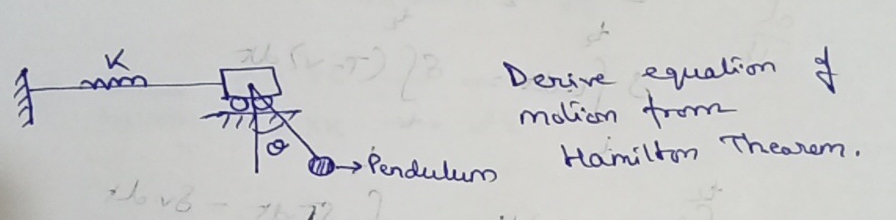 K
Derive equation of
motion from
Hamilton Theorem.
θ
Pendulum